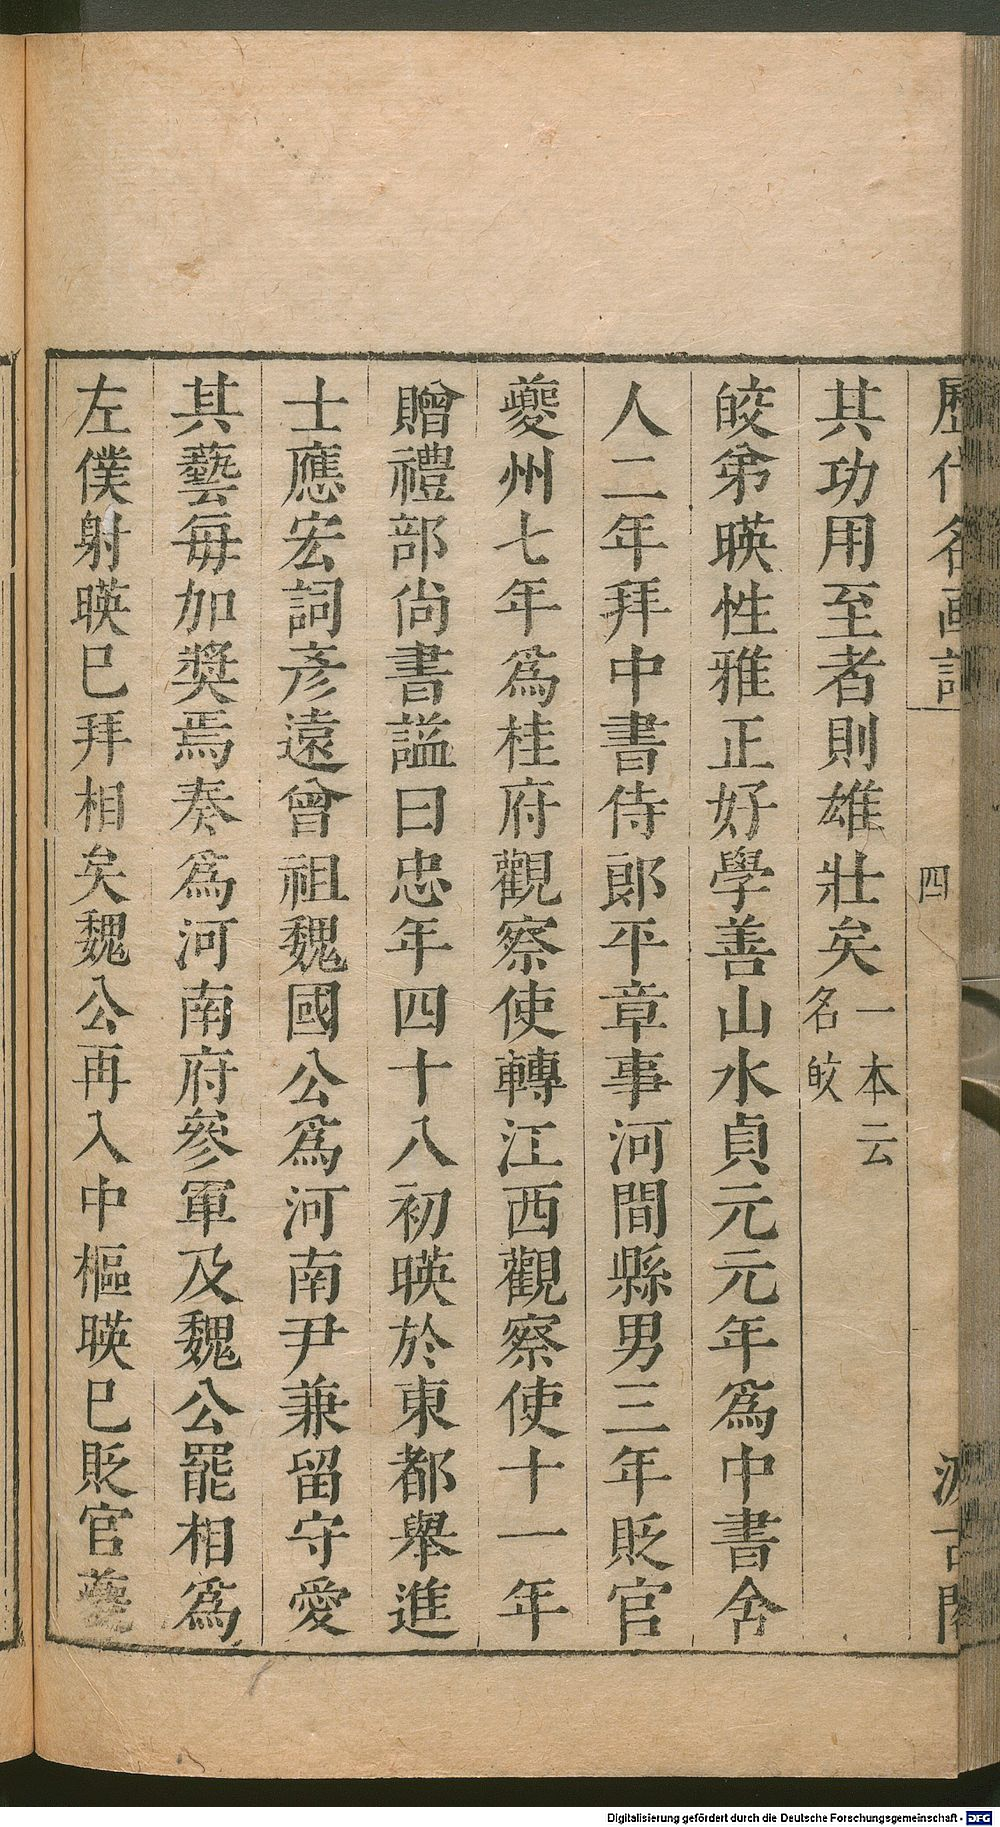 歷代名画記
四
汲古閣
其功用至者則雄壯矣一本云
名皎
皎弟暎性雅正好學善山水貞元元年爲中書舍
人二年拜中書侍郎平章事河間縣男三年貶官
夔州七年爲桂府觀察使轉江西觀察使十一年
贈禮部尚書謚曰忠年四十八初暎於東都舉進
士應宏詞彥遠曾祖魏國公爲河南尹兼留守愛
其藝每加獎焉奏爲河南府參軍及魏公罷相爲
左僕射暎巳拜相矣魏公再入中樞暎巳貶官夔
Digitalisierung gefördert durch die Deutsche Forschungsgemeinschaft - DFG